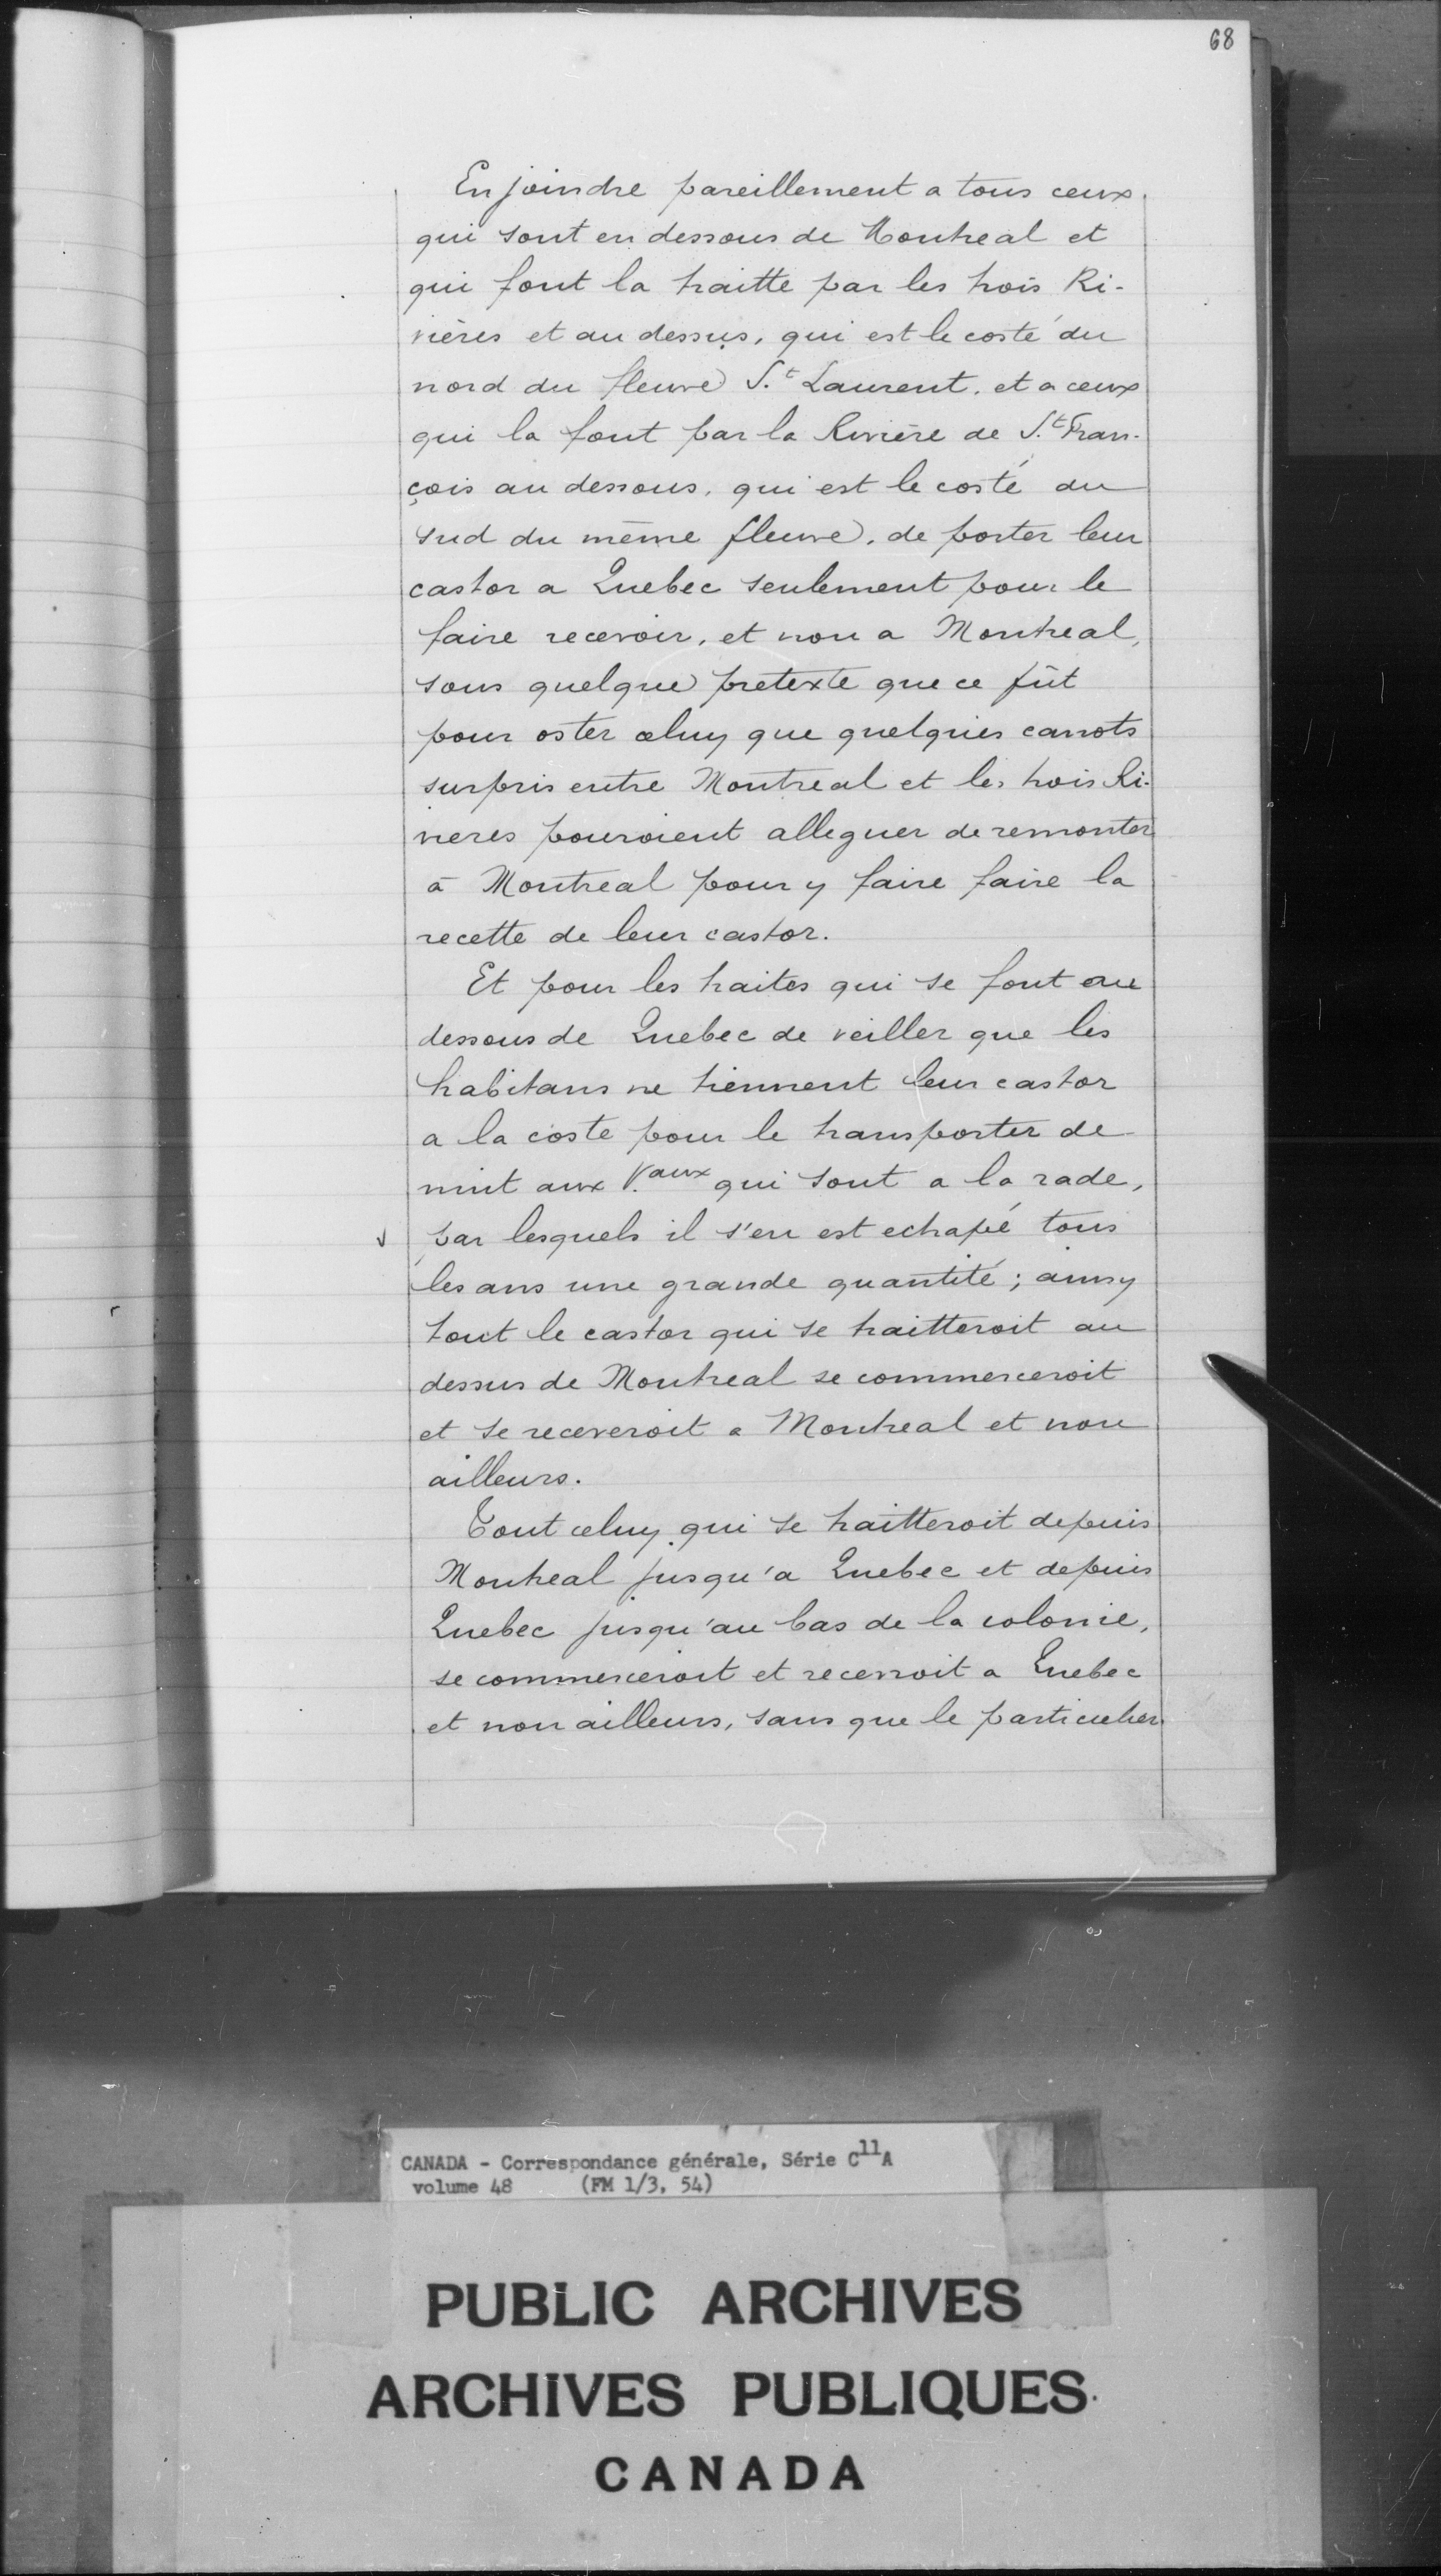 68
Enjoindre pareillement a tous ceux
qui sont en dessous de Montreal et
qui font la traitte par les trois Ri-
vières et au dessus, qui est le costé du
nord du fleuve S.t Laurent, et a ceux
qui la font par la Rivière de S.t Fran-
çois au dessous, qui est le costé du
sud du même fleuve, de porter leur
castor a Quebec seulement pour le
faire recevoir, et non a Montreal,
sous quelque pretexte que ce fût
pour oster celuy que quelques canots
surpris entre Montreal et les trois Ri-
vieres pouroient alleguer de remonter
à Montreal pour y faire faire la
recette de leur castor.
Et pour les traites qui se font au
dessous de Quebec de veiller que les
habitans ne tiennent leur castor
a la coste pour le transporter de
nuit aux V.aux qui sont a la rade,
par lesquels il s'en est echapé tous
les ans une grande quantité ; ainsy
tout le castor qui se traitteroit au
dessus de Montreal se commerceroit
et se receveroit a Montreal et non
ailleurs.
Tout celuy qui se traitteroit depuis
Montreal jusqu'a Quebec et depuis
Quebec jusqu'au bas de la colonie,
se commerceroit et recevroit a Quebec
et non ailleurs, sans que le particulier
CANADA - Correspondance générale, Série C11A
volume 48 (FM 1/3, 54)
PUBLIC ARCHIVES
ARCHIVES PUBLIQUES
CANADA